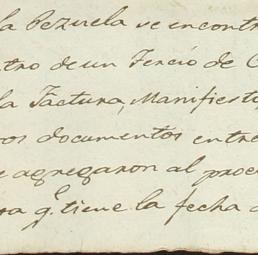 la Pezuela se incontr
tro de un Tercio de C
la Factura, Manifiesto
ros documentos entre
e agregaron al proce
ra q.e tiene la fecha d